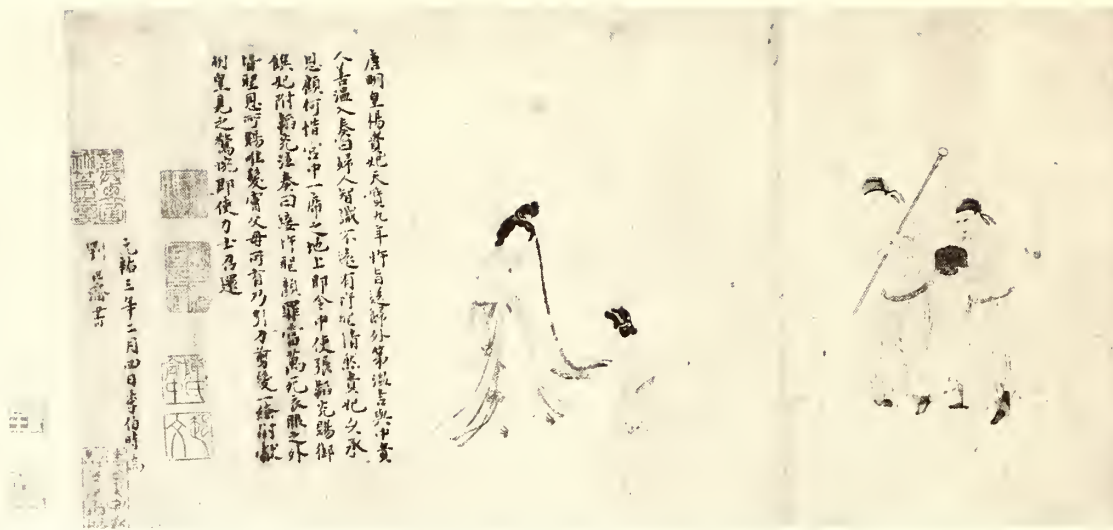 唐明皇楊貴妃天寶九年忤旨送歸外第溫吉與中貴
人善溫入奏曰婦人智識不遠有忤聖情然貴妃久承
恩顧何惜宮中一席之地上即令中使張韜光賜御
饌妃附韜光泣奏曰妾忤聖顏罪當萬死衣服之外
皆聖恩所賜惟髮膚父母所有乃引刀剪髮一繚附獻
明皇見之驚惋即使力士召還
元祐三年二月四日李伯時
劉書